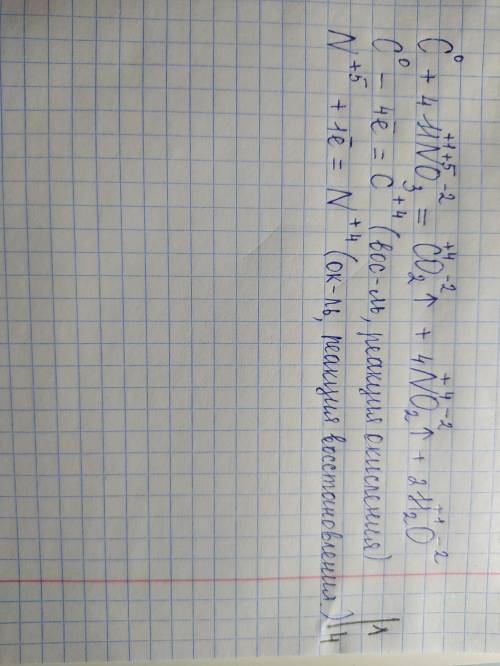 C⁰ + 4H⁺¹N⁺⁵O₃⁻² = C⁺⁴O₂⁻²↑ + 4N⁺⁴O₂⁻²↑ + 2H₂⁺¹O⁻²
C⁰ - 4ē = C⁺⁴ (вос-ль, реакция окисления) | 1
N⁺⁵ + 1ē = N⁺⁴ (ок-ль, реакция восстановления) | 4